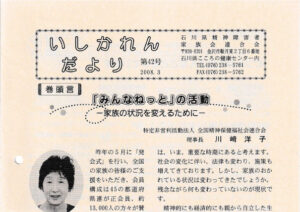 いしかれん
だより
第42号
2008.3
石川県精神障害者
家族会連合会
石川県こころの健康センター内
TEL(076)238-5761
FAX(076)238-5762
巻頭言
「みんなねっと」の活動
―家族の状況を変えるために―
特定非営利活動法人 全国精神保健福祉会連合会
理事長 川崎洋子
昨年の5月に「発
会式」を行い、全国
の家族の皆様のご支
援をいただき、会員
構成は45の都道府
県連が正会員、約
13,000人の方々が賛
は、いま、重要な時期にあると考えます。
社会の変化に伴い、法律も変わり、施策も
増えてきております。しかし、家族のおか
れている状況は変わってきたでしょうか。
残念ながら何も変わっていないのが現状で
す。
精神的にも経済的にも親から自立した生